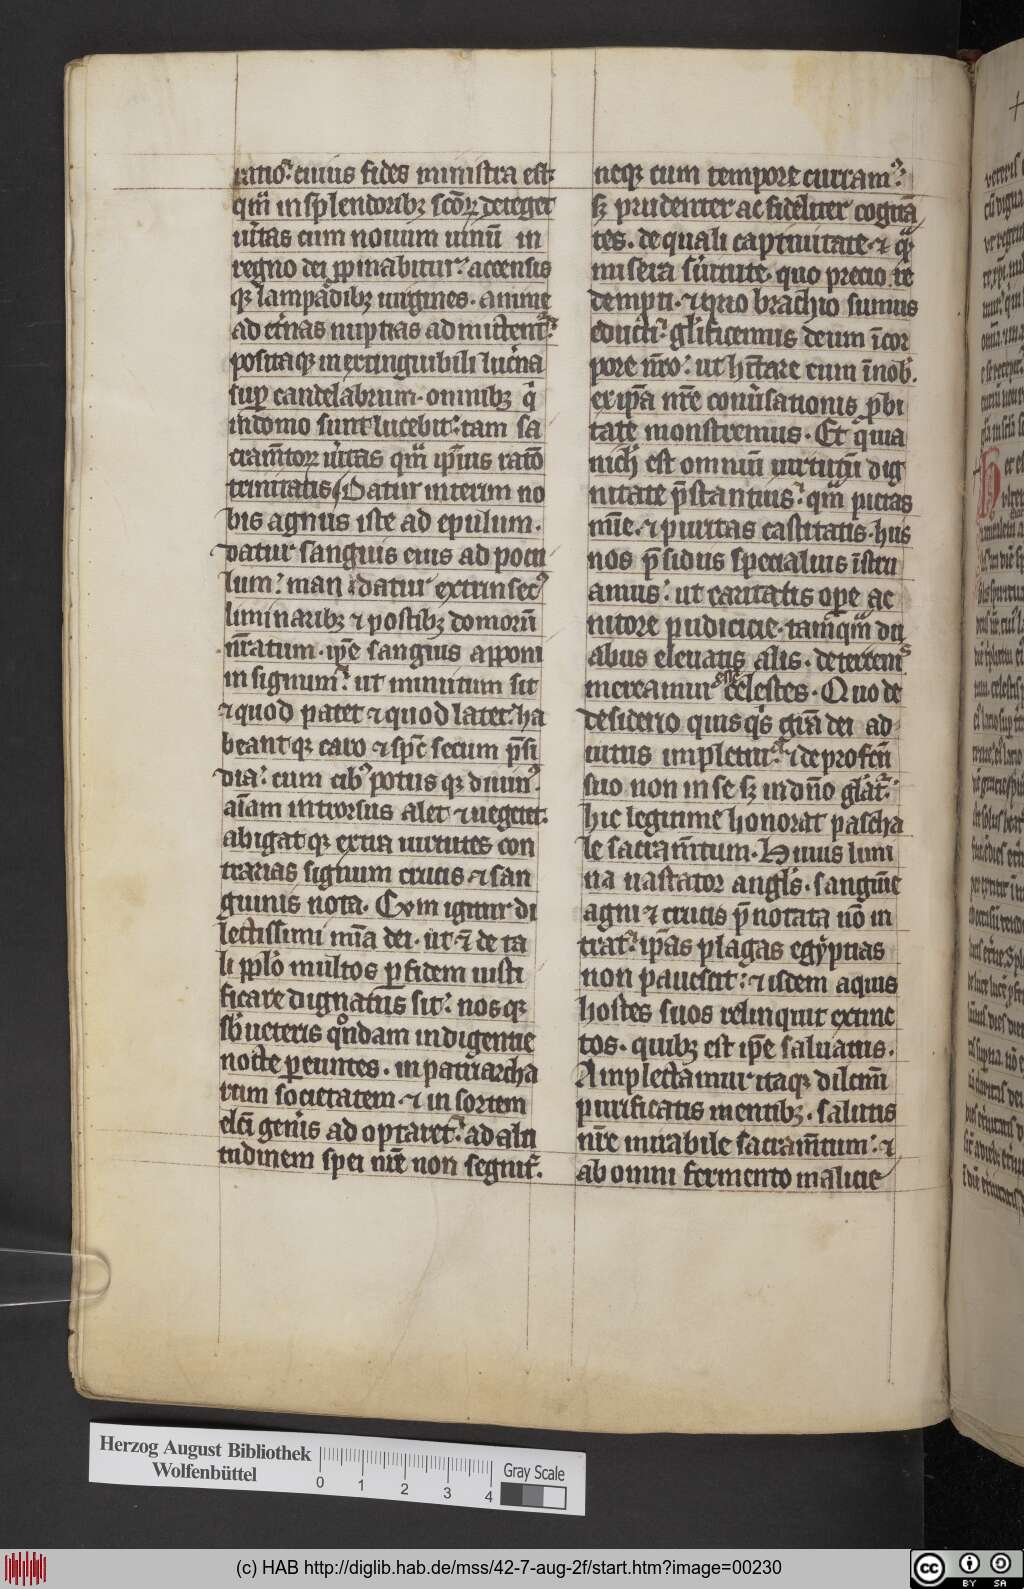 ratio: cuius fides ministra est:
qm̄ in splendoribꝫ scōꝝ deteget
ūitas cum nouum uinū in
regno dei ꝓpinabitur: accensis
qꝫ lampadibꝫ uirgines. anime
ad et̄nas nuptias admittent᷑:
positaqꝫ inextinguibili luc̄na
suꝑ candelabrum. omnibꝫ qͥ
in domo sunt lucebit: tam sa
cram̄toꝝ ūitas qm̄ ip̄ius ratō
trinitatis. Datur interim no
bis agnus iste ad epulum.
datur sanguis eius ad pocu
lum: man datur extrinsecꝰ
liminaribꝫ ⁊ postibꝫ domorū
nr̄atum. ip̄e sangius apponi
in signum: ut inuitum sit
⁊ quod patet ⁊ quod latet: ha
beantqꝫ caro ⁊ sp̄c secum p̄si
dia: cum cibꝰ potus qꝫ diuinꝰ.
aīam introrsus alet ⁊ uegetet.
abigatqꝫ extra uirtutes con
trarias signum crucis. ⁊ san
guinis nota. Cum igitur di
lectissimi mīa dei. ut ⁊ de ta
li ꝓplo multos ꝑ fidem iusti
ficare dignatus sit: nosqꝫ
sb̄ ueteris qͦndam indigentie
nocte ꝑeuntes. in patriarcha
rum societatem ⁊ in sortem
elc̄i gen̄is adoptaret: ad alti
tudinem spei nr̄e non segnit̄.
neqꝫ cum tempore curram᷒:
sꝫ prudenter ac fideliter cogitā
tes. de quali captiuitate. ⁊ qͣꝫ
misera s̄uitute. quo precio re
dempti. ⁊ quo brachio sumus
educti: gl̄ificemus deum ī cor
pore nr̄o: ut hītare eum ī nob̄.
ex ip̄a nr̄e conūsationis ꝓbi
tate monstremus. Et quia
nich̄ est omniū uirtutū dig
nitate p̄stantius: qm̄ pietas
mīe. ⁊ puritas castitatis. hus
nos p̄sidiis specialius īstru
amus: ut caritatis oꝑe ac
nitore pudicicie. tamqm̄ du
abus eleuatis alis. de terrenis
mereamur esse celestes. Quo de
desiderio quisqͥs gīa dei ad
iutus impletur: ⁊ de profectu
suo non in se sꝫ in dn̄o gl̄at᷑:
hic legitime honorat pascha
le sacram̄tum. Huius lim
na uastator angl̄s. sanguīe
agni ⁊ crucis p̄notata nō in
trat: ip̄as plagas egyptias
non pauescit: ⁊ isdem aquis
hostes suos relinquit extinc
tos. quibꝫ est ip̄e saluatus.
Amplectamur itaqꝫ dilcm̄i
purificatis mentibꝫ. salutis
nr̄e mirabile sacram̄tum: ⁊
ab omni fermento malicie
Herzog August Bibliothek
Wolfenbüttel
0 1 2 3 4
Gray Scale
(c) HAB http://diglib.hab.de/mss/42-7-aug-2f/start.htm?image=00230
cc BY SA